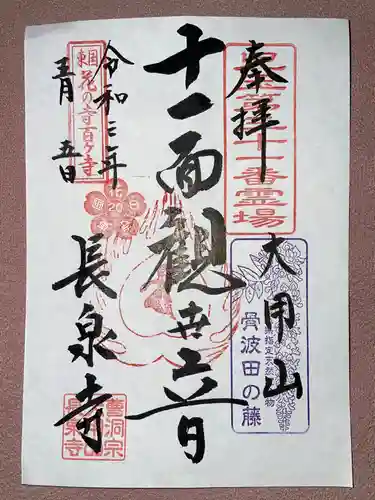 奉拝
大用山
十一面観世音
長泉寺
令和三年
五月五日
東国花の寺百ヶ寺
骨波田の藤
指定天然記念物
曹洞宗
長泉寺